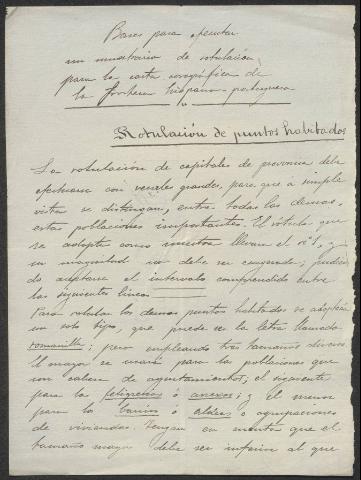 Bases para ejecutar
un muestrario de rotulación
para la carta corográfica de
la frontera hispano-portuguesa
Rotulación de puntos habitados
La rotulación de capitales de provincia debe
efectuarse con verales grandes, para que a simple
vista se distingan, entre todas las demas,
estas poblaciones importantes. El rótulo que
se adopte como muestra llevará el nº , y
su magnitud no debe ser exagerada; pudien
do aceptarse el intervalo comprendido entre
las siguientes líneas
Para rotular los demas puntos habitados se adoptará
un solo tipo, que puede ser la letra llamada
romanilla; pero empleando tres tamaños diversos.
El mayor se usará para las poblaciones que
son cabeza de ayuntamientos; el siguiente
para las feligresías ó anexos; y el menor
para los barrios ó aldeas ó agrupaciones
de viviendas. Tengase en cuenta que el
tamaño mayor debe ser inferior al que